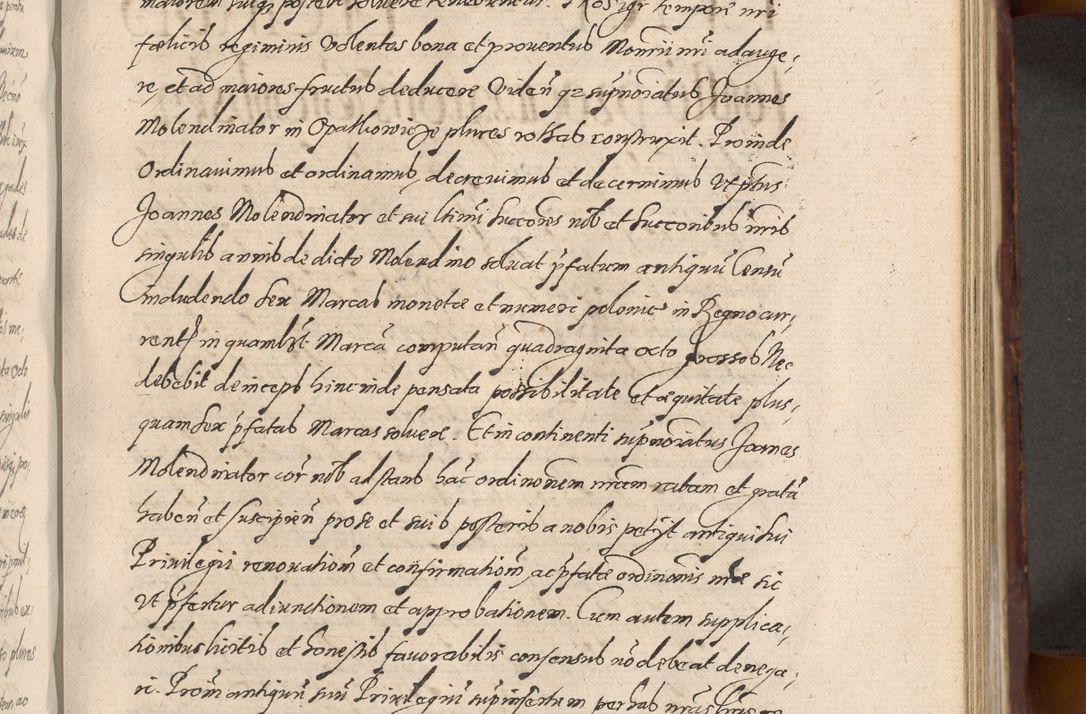 maiorem suisq₃ posteris soluere tenebuntur. Nos igr̃ tempore nr̃i
fœlicis regiminis volentes bona et prouentus Mon̄rij nr̃i adauge,
re, et ad maiores fructus deducere Viden̄ qz sup̃noratus Joannes
Molendinator in Opatkowicze plures rottas construxit. Proinde
Ordinauimus et ordinamus, decreuimus et decernimus Vt p̃tus
Joannes Molendinator et sui ltimi succores nob et succoribus nr̃is
singulis annis de dicto Molendino soluat p̃fatum antiquũ Censũ
includendo sex Marcas monetæ et numeri polonic in Regno cur,
rentẽ in quamlib̃t Marcã computan̄ quadraginta octo grossos Nec
debebit deinceps hinc inde pensata possibilitate et æquitate plus,
quam sex p̃fatas Marcas soluere. Et in continenti sup̃noratus Joannes
Molendinator cor̃ nob adstans hac ordinonem nr̃am ratam et gratã
haben̄ et suscipien̄ pro se et suis posteris a nobis petijt antiqui sui
Priuilegii renouationem et confirmationem, ac p̃fatæ ordinonis nr̃æ sic
Vt p̃fertur adiunctionem et approbationem. Cum autem supplica,
tionibus licitis et honestis fauorabilis consensus nõ debeat denega,
ri. Proin̄ antiquũ suũ Priuilegiũ sup̃insertum per has nr̃as lr̃as